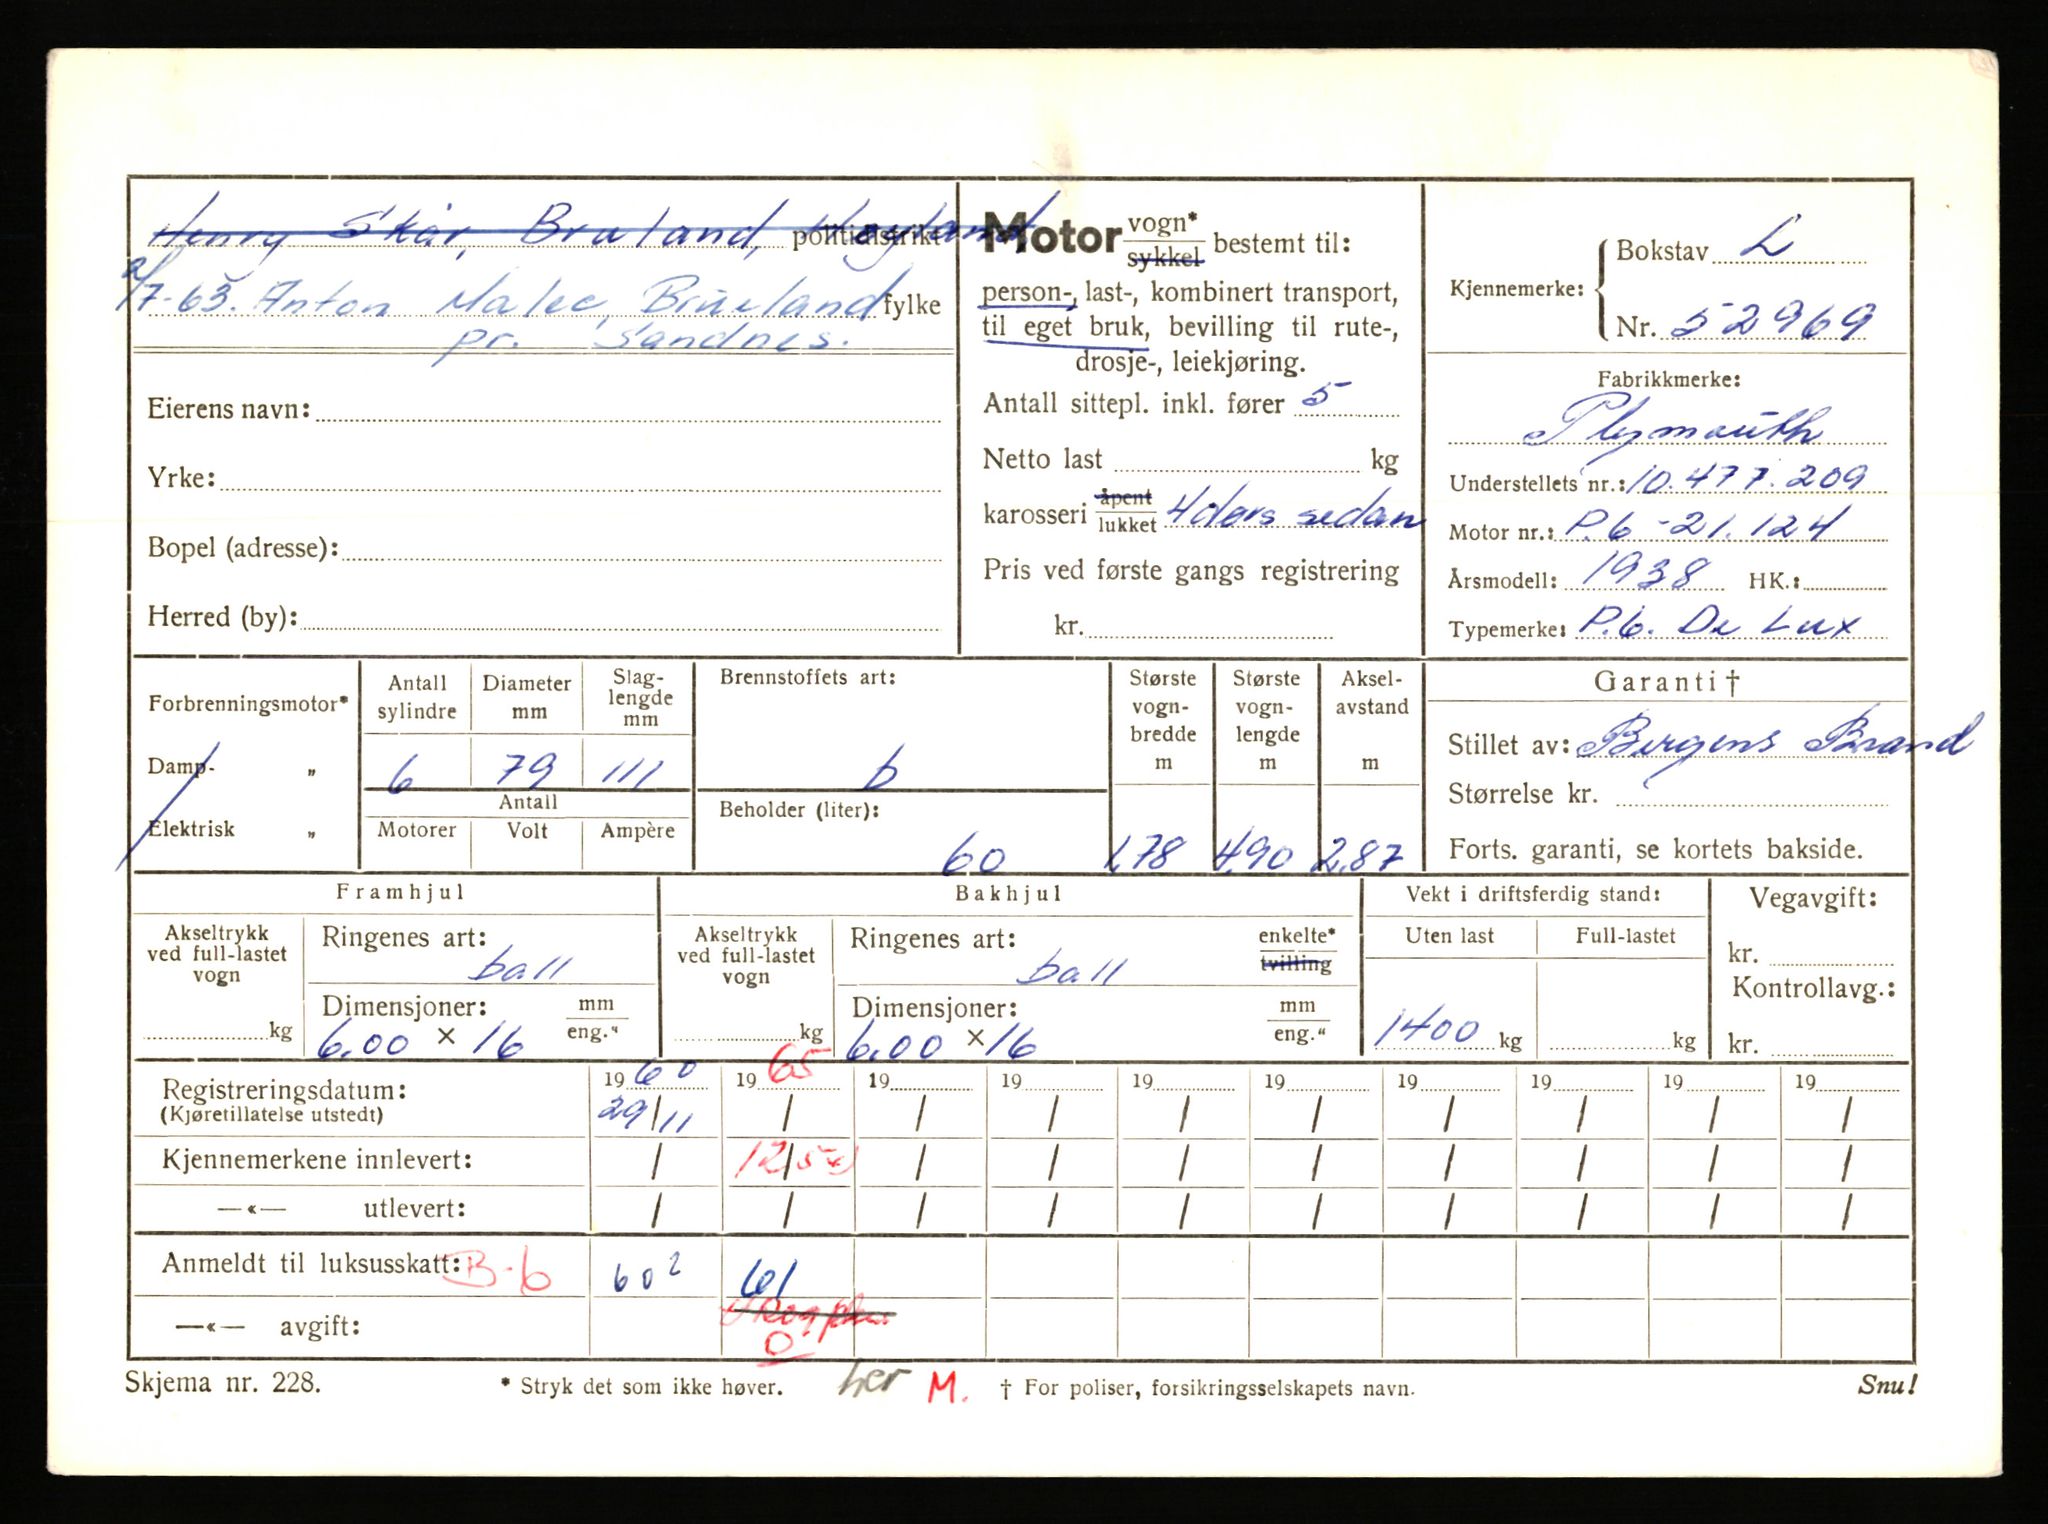 Henry Skår, Bruland, Høyland politidistrikt
2/7-63. Anton Malee, Brueland fylke
pr. Sandnes.
Eierens navn:
Yrke:
Bopel (adresse):
Herred (by):
Motor vogn* sykkel bestemt til:
person-, last-, kombinert transport,
til eget bruk, bevilling til rute-,
drosje-, leiekjøring.
Antall sittepl. inkl. fører 5
Netto last kg
karosseri åpent lukket 4 dørs sedan
Pris ved første gangs registrering
kr.
Kjennemerke: Bokstav L
Nr. 52969
Fabrikkmerke:
Plymouth
Understellets nr.: 10.477.209
Motor nr.: P.6-21.124
Årsmodell: 1938 HK.:
Typemerke: P.6. De Lux
Forbrenningsmotor*
Damp- „
Elektrisk „
Antall sylindre
Diameter mm
Slag-lengde mm
6 79 111
Antall
Motorer Volt Ampère
Brennstoffets art:
b
Beholder (liter):
60
Største vogn-bredde m
1.78
Største vogn-lengde m
4.90
Aksel-avstand m
2.87
Garanti †
Stillet av: Bergens Brand
Størrelse kr.
Forts. garanti, se kortets bakside.
Framhjul
Akseltrykk ved full-lastet vogn
kg
Ringenes art:
ball
Dimensjoner: mm eng."
6.00 × 16
Bakhjul
Akseltrykk ved full-lastet vogn
kg
Ringenes art: enkelte* tvilling
ball
Dimensjoner: mm eng."
6.00 × 16
Vekt i driftsferdig stand:
Uten last Full-lastet
1400 kg kg
Vegavgift:
kr.
Kontrollavg.:
kr.
Registreringsdatum: 1960 1965 19 19 19 19 19 19 19 19
(Kjøretillatelse utstedt) 29/11 / / / / / / / / /
Kjennemerkene innlevert: / 12/5 / / / / / / / /
—«— utlevert: / / / / / / / / / /
Anmeldt til luksusskatt: B-6 60² 61
—«— avgift: 0
Skjema nr. 228. * Stryk det som ikke høver. her M. † For poliser, forsikringsselskapets navn. Snu!